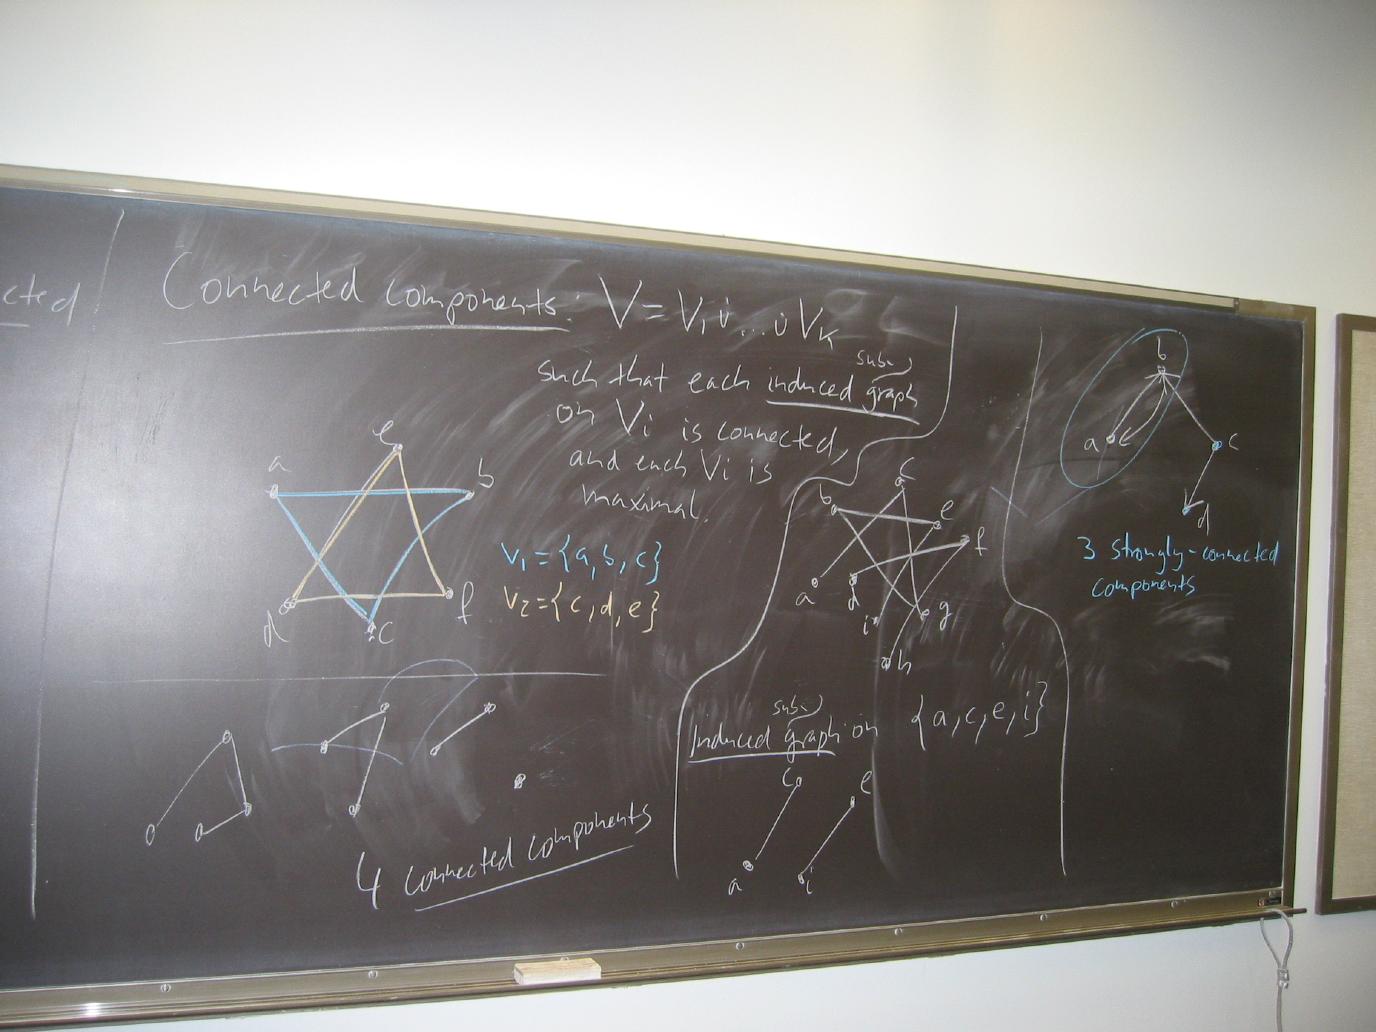 cted
Connected components: V = V₁ ∪̇ ... ∪̇ Vₖ
such that each induced subgraph
on Vᵢ is connected,
and each Vᵢ is
maximal.
e
a
b
d
c
f
V₁ = {a, b, c}
V₂ = {c, d, e}
4 connected components
c
b
e
f
a
d
i
g
h
Induced subgraph on {a, c, e, i}
c
e
a
i
b
a
c
d
3 strongly-connected
components